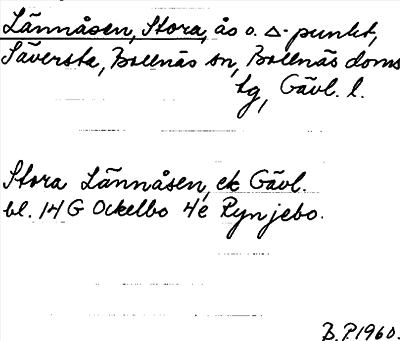 Lännåsen, Stora, ås o. △-punkt,
Säversta, Bollnäs sn, Bollnäs doms
tg, Gävl. l.
Stora Lännåsen, ek Gävl.
bl. 14 G Ockelbo 4e Rynjebo.
B.P. 1960.